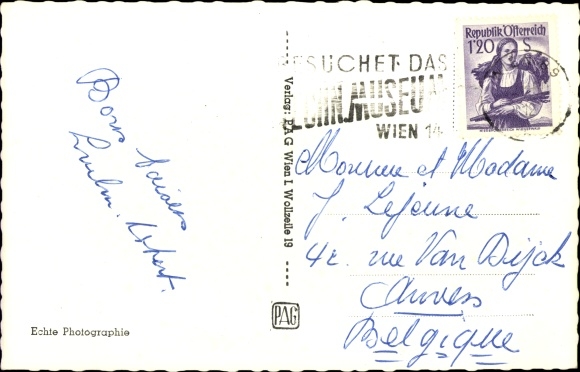 Bons baisers
Echte Photographie
Verlag: PAG Wien I, Wollzeile 19
PAG
BESUCHET DAS
UHRNMUSEUM
WIEN 1
Republik Österreich
1'20
Monsieur et Madame
J. Lejeune
42, rue Van Dijck
Anvers
Belgique